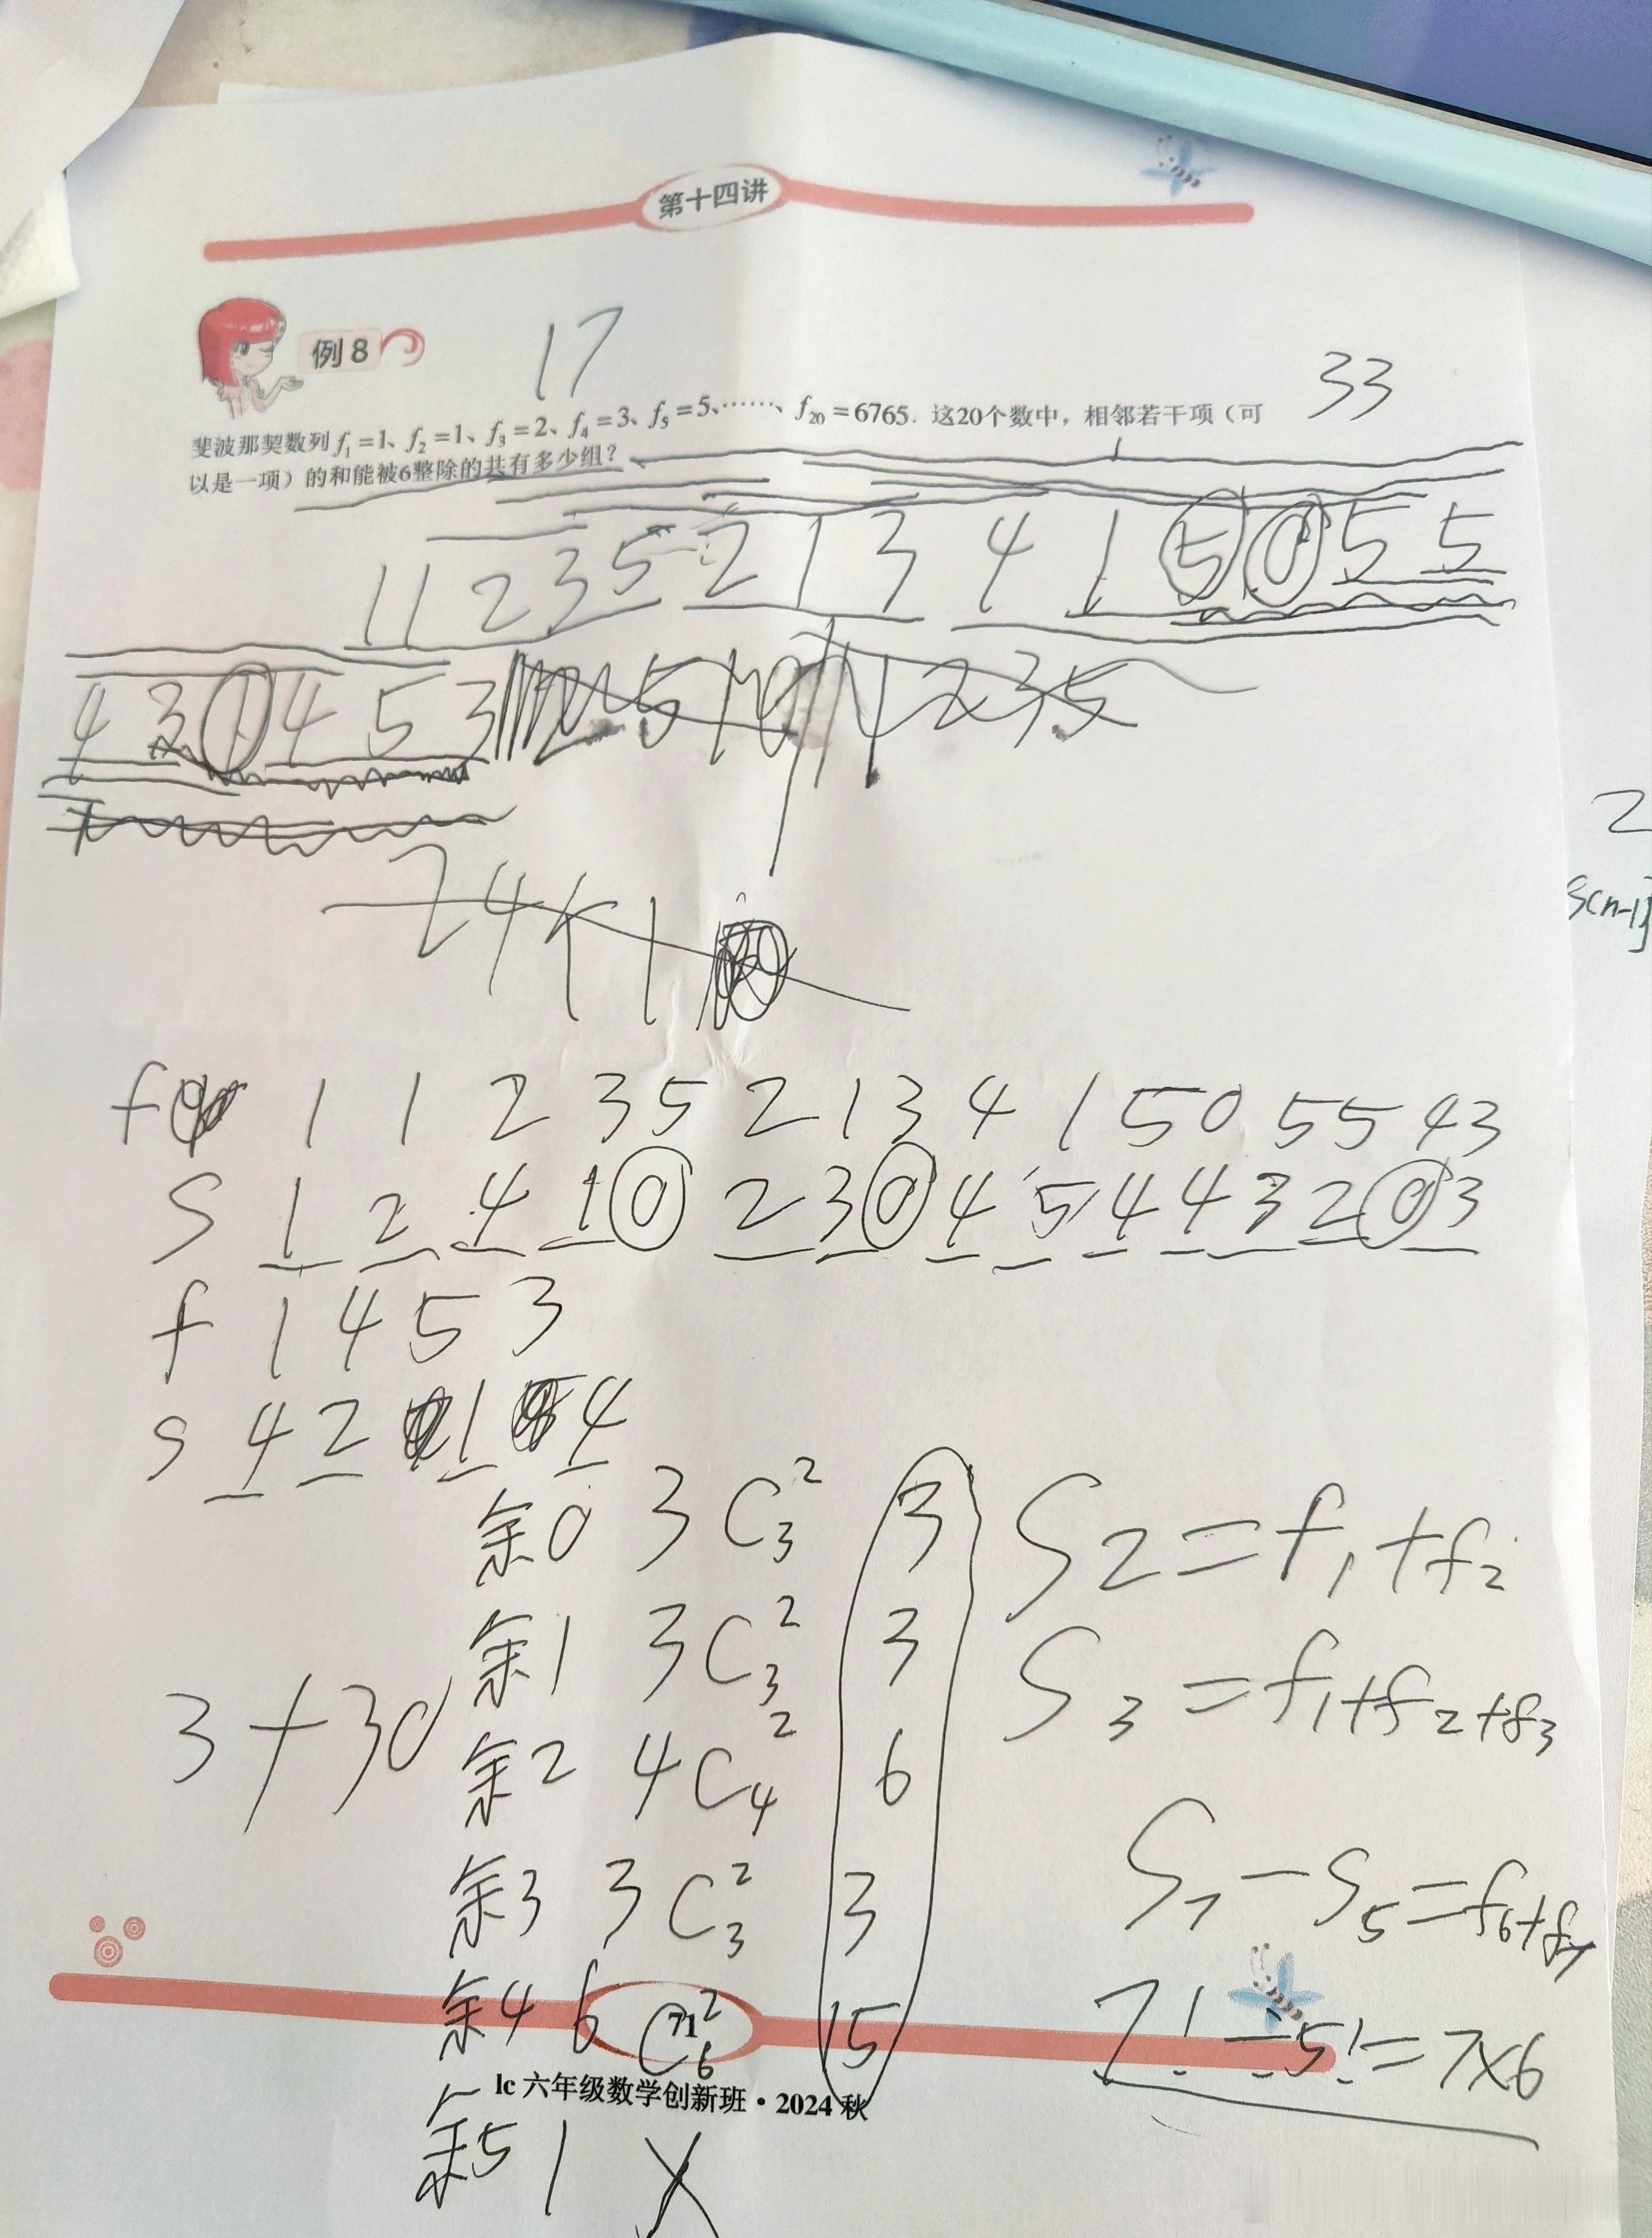 第十四讲
例8
17
33
斐波那契数列f₁=1、f₂=1、f₃=2、f₄=3、f₅=5、……、f₂₀=6765. 这20个数中，相邻若干项（可
以是一项）的和能被6整除的共有多少组？
1 1 2 3 5 2 1 3 4 1 5 0 5 5
4 3 1 4 5 3
2
S(n-1)
f 1 1 2 3 5 2 1 3 4 1 5 0 5 5 4 3
S 1 2 4 1 0 2 3 0 4 5 4 4 3 2 0 3
f 1 4 5 3
S 4 2 1 4
余0 3 C₃² 3
S₂=f₁+f₂
余1 3 C₃² 3
S₃=f₁+f₂+f₃
3+30
余2 4 C₄² 6
余3 3 C₃² 3
S₇-S₅=f₆+f₇
余4 6 C₆² 15
7!-5!=7×6
71
lc 六年级数学创新班·2024秋
余5 1 X